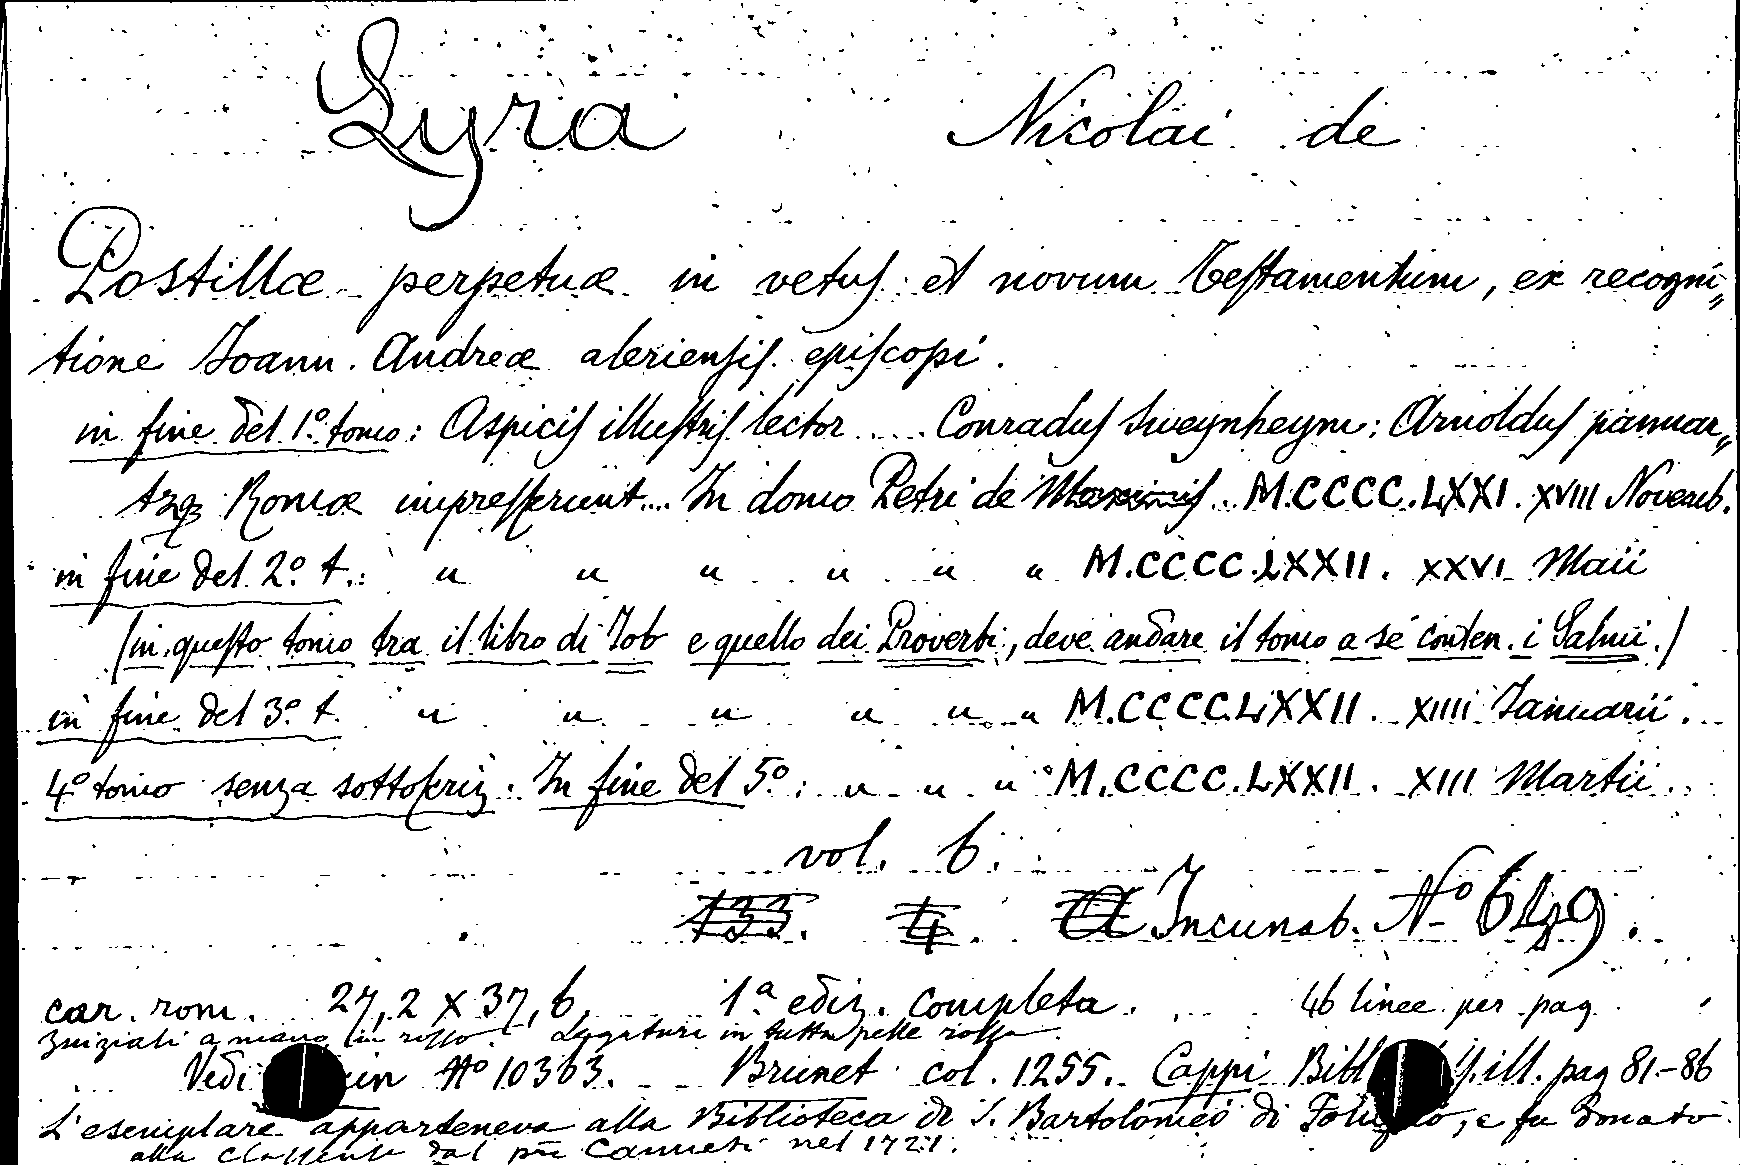 Lyra Nicolai de
Postillæ perpetuæ in vetus et novum Testamentum, ex recogni„
tione Ioann. Andreæ aleriensis episcopi.
in fine del 1º tomo: Aspicis illustris lector .... Conradus Sweynheym: Arnoldus pannar„
tzq Romæ impresserunt... In domo Petri de Maximis .. M.CCCC.LXXI. XVIII Novemb.
in fine del 2º t.: " " " " " " M.CCCC.LXXII. XXVI Maii
(in questo tomo tra il libro di Iob e quello dei Proverbi, deve andare il tomo a sé conten. i Salmi.)
in fine del 3º t. " " " " " " M.CCCC.LXXII. XIIII Ianuarii.
4º tomo senza sottoscriz. In fine del 5º: " " " M.CCCC.LXXII. XIII Martii.
vol. 6.
133. 4. Incunab. Nº 649.
car. rom. 27,2 x 37,6 1ª ediz. completa. 46 linee per pag.
Iniziali a mano in rosso. Legatura in tutta pelle rossa.
Vedi Nº 10363. Brunet col. 1255. Cappi Bibl ill. pag 81-86
L'esemplare apparteneva alla Biblioteca di S. Bartolomeo di Foligno, e fu donato
alla Classense dal Canneti nel 1721.